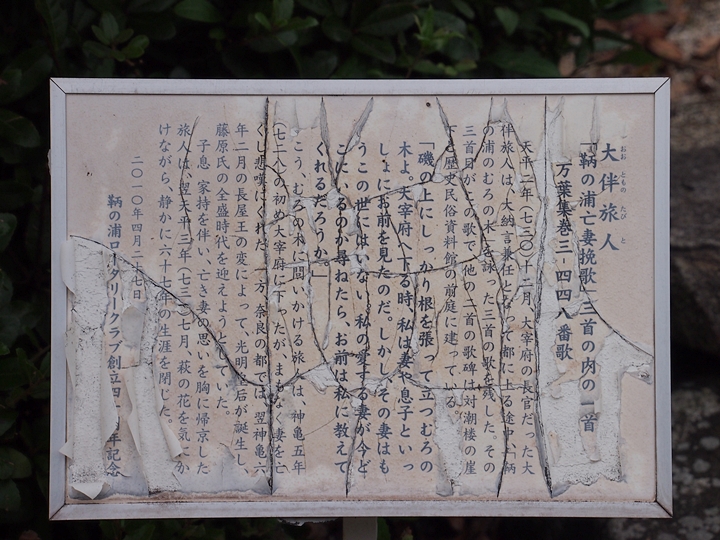 大伴旅人
おお とも の たび と
「鞆の浦亡妻挽歌」三首の内の一首
万葉集巻三-四四八番歌
天平二年(七三〇)十二月、大宰府の長官だった大
伴旅人は、大納言兼任となって都に上る途中、鞆
の浦のむろの木を詠った三首の歌を残した。その
三首目が、の歌で、他の二首の歌碑は対潮楼の崖
下と歴史民俗資料館の前庭に建っている。
「磯の上にしっかり根を張って立つむろの
木よ。大宰府へ下る時、私は妻や息子といっ
しょにお前を見たのだ。しかし、その妻はも
うこの世にはいない。私の愛する妻が今ど
こにいるのか尋ねたら、お前は私に教えて
くれるだろうか。」
こう、むろの木に問いかける旅人は、神亀五年
(七二八)の初め大宰府に下ったが、まもなく妻を亡
くし悲嘆にくれた。一方、奈良の都では、翌神亀六
年二月の長屋王の変によって、光明皇后が誕生し、
藤原氏の全盛時代を迎えようとしていた。
子息 家持を伴い、亡き妻の思いを胸に帰京した
旅人は、翌天平三年(七三一)七月、萩の花を気にか
けながら、静かに六十七年の生涯を閉じた。
二〇一〇年四月二七日
鞆の浦ロータリークラブ創立四十周年記念